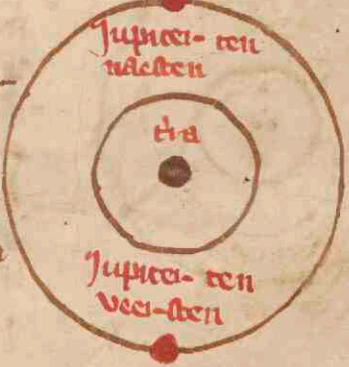 Jupiter ten
naesten
t'ra
Jupiter ten
veersten